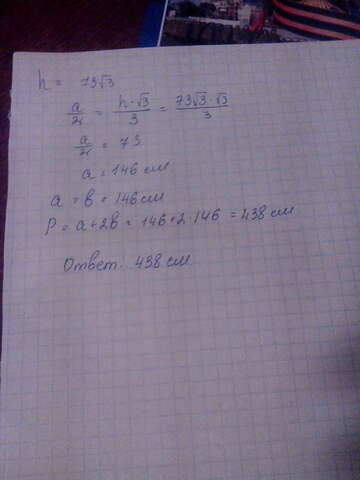 h = 73√3
a/2 = h·√3/3 = 73√3·√3/3
a/2 = 73
a = 146 см
a = b = 146 см
P = a + 2b = 146 + 2·146 = 438 см
Ответ: 438 см